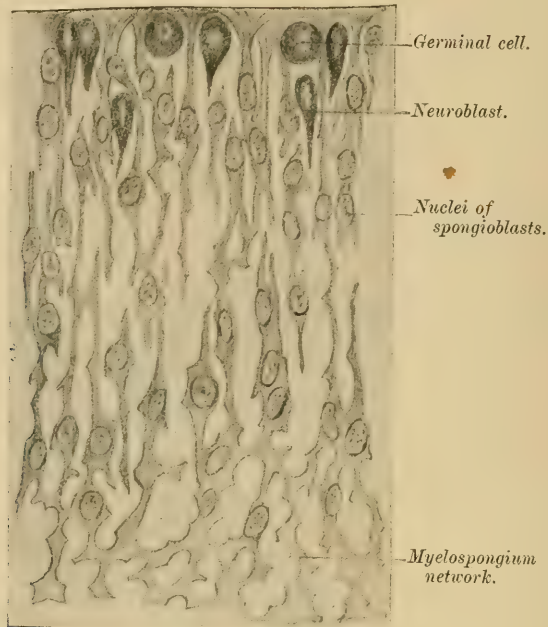 Germinal cell.
Neuroblast.
Nuclei of
spongioblasts.
Myelospongium
network.